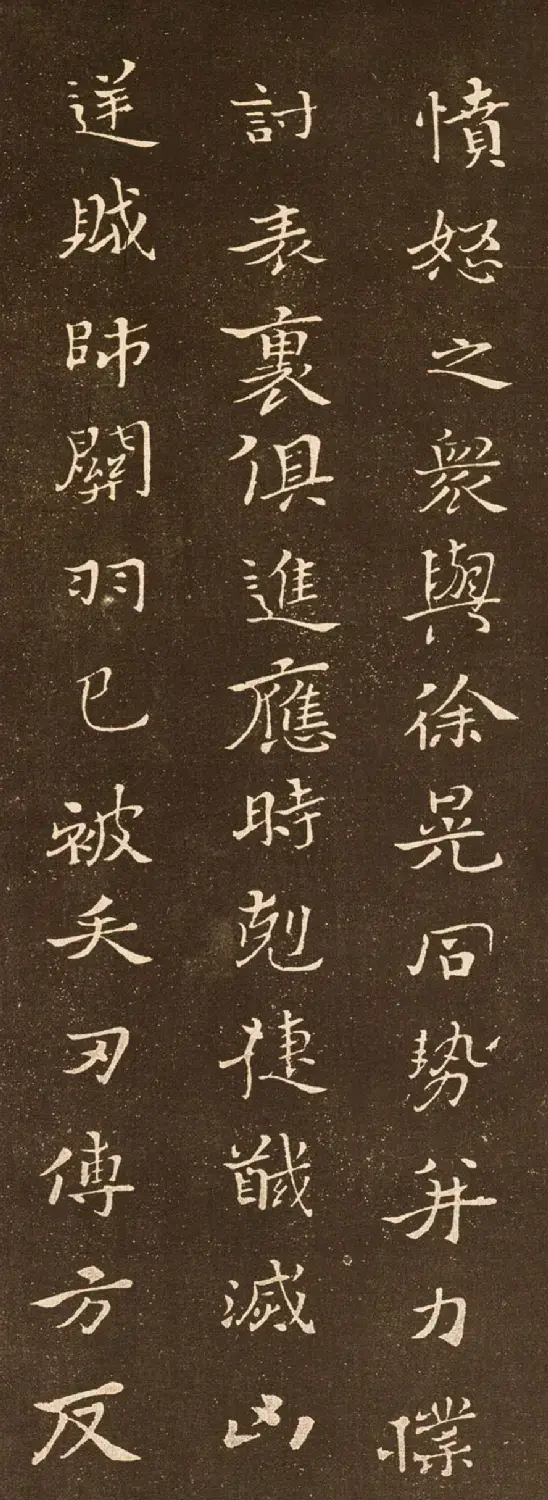 憤怒之衆與徐晃同勢并力撲
討表裏俱進應時剋捷馘滅凶
逆賊帥關羽已被矢刃傅方反